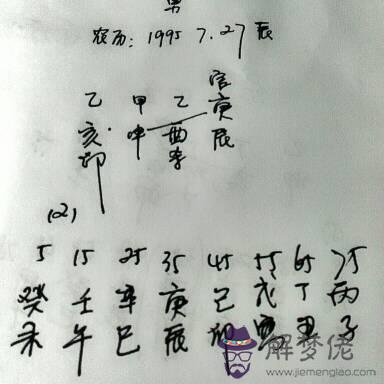 男
农历: 1995 7.27 辰
官
乙 甲 乙 庚
亥 申 酉 辰
卯 辛
(2)
5 15 25 35 45 55 65 75
癸 壬 辛 庚 己 戊 丁 丙
未 午 巳 辰 卯 寅 丑 子
解梦佬
www.jiemenglao.com